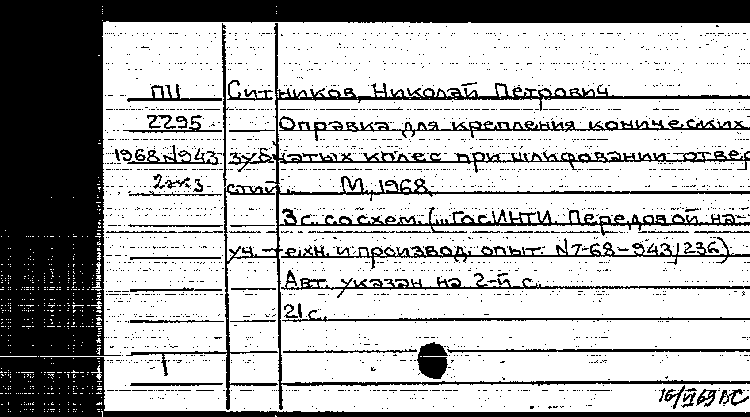 ПII Ситников, Николай Петрович
2295 Оправка для крепления конических
1968 N943 зубчатых колес при шлифовании отвер
2экз стий. М., 1968.
3с. со схем. (...ГосИНТИ. Передовой на-
уч.-техн. и производ. опыт. N7-68-943/236)
Авт. указан на 2-й с.
21с.
1
16/VI69 ВС